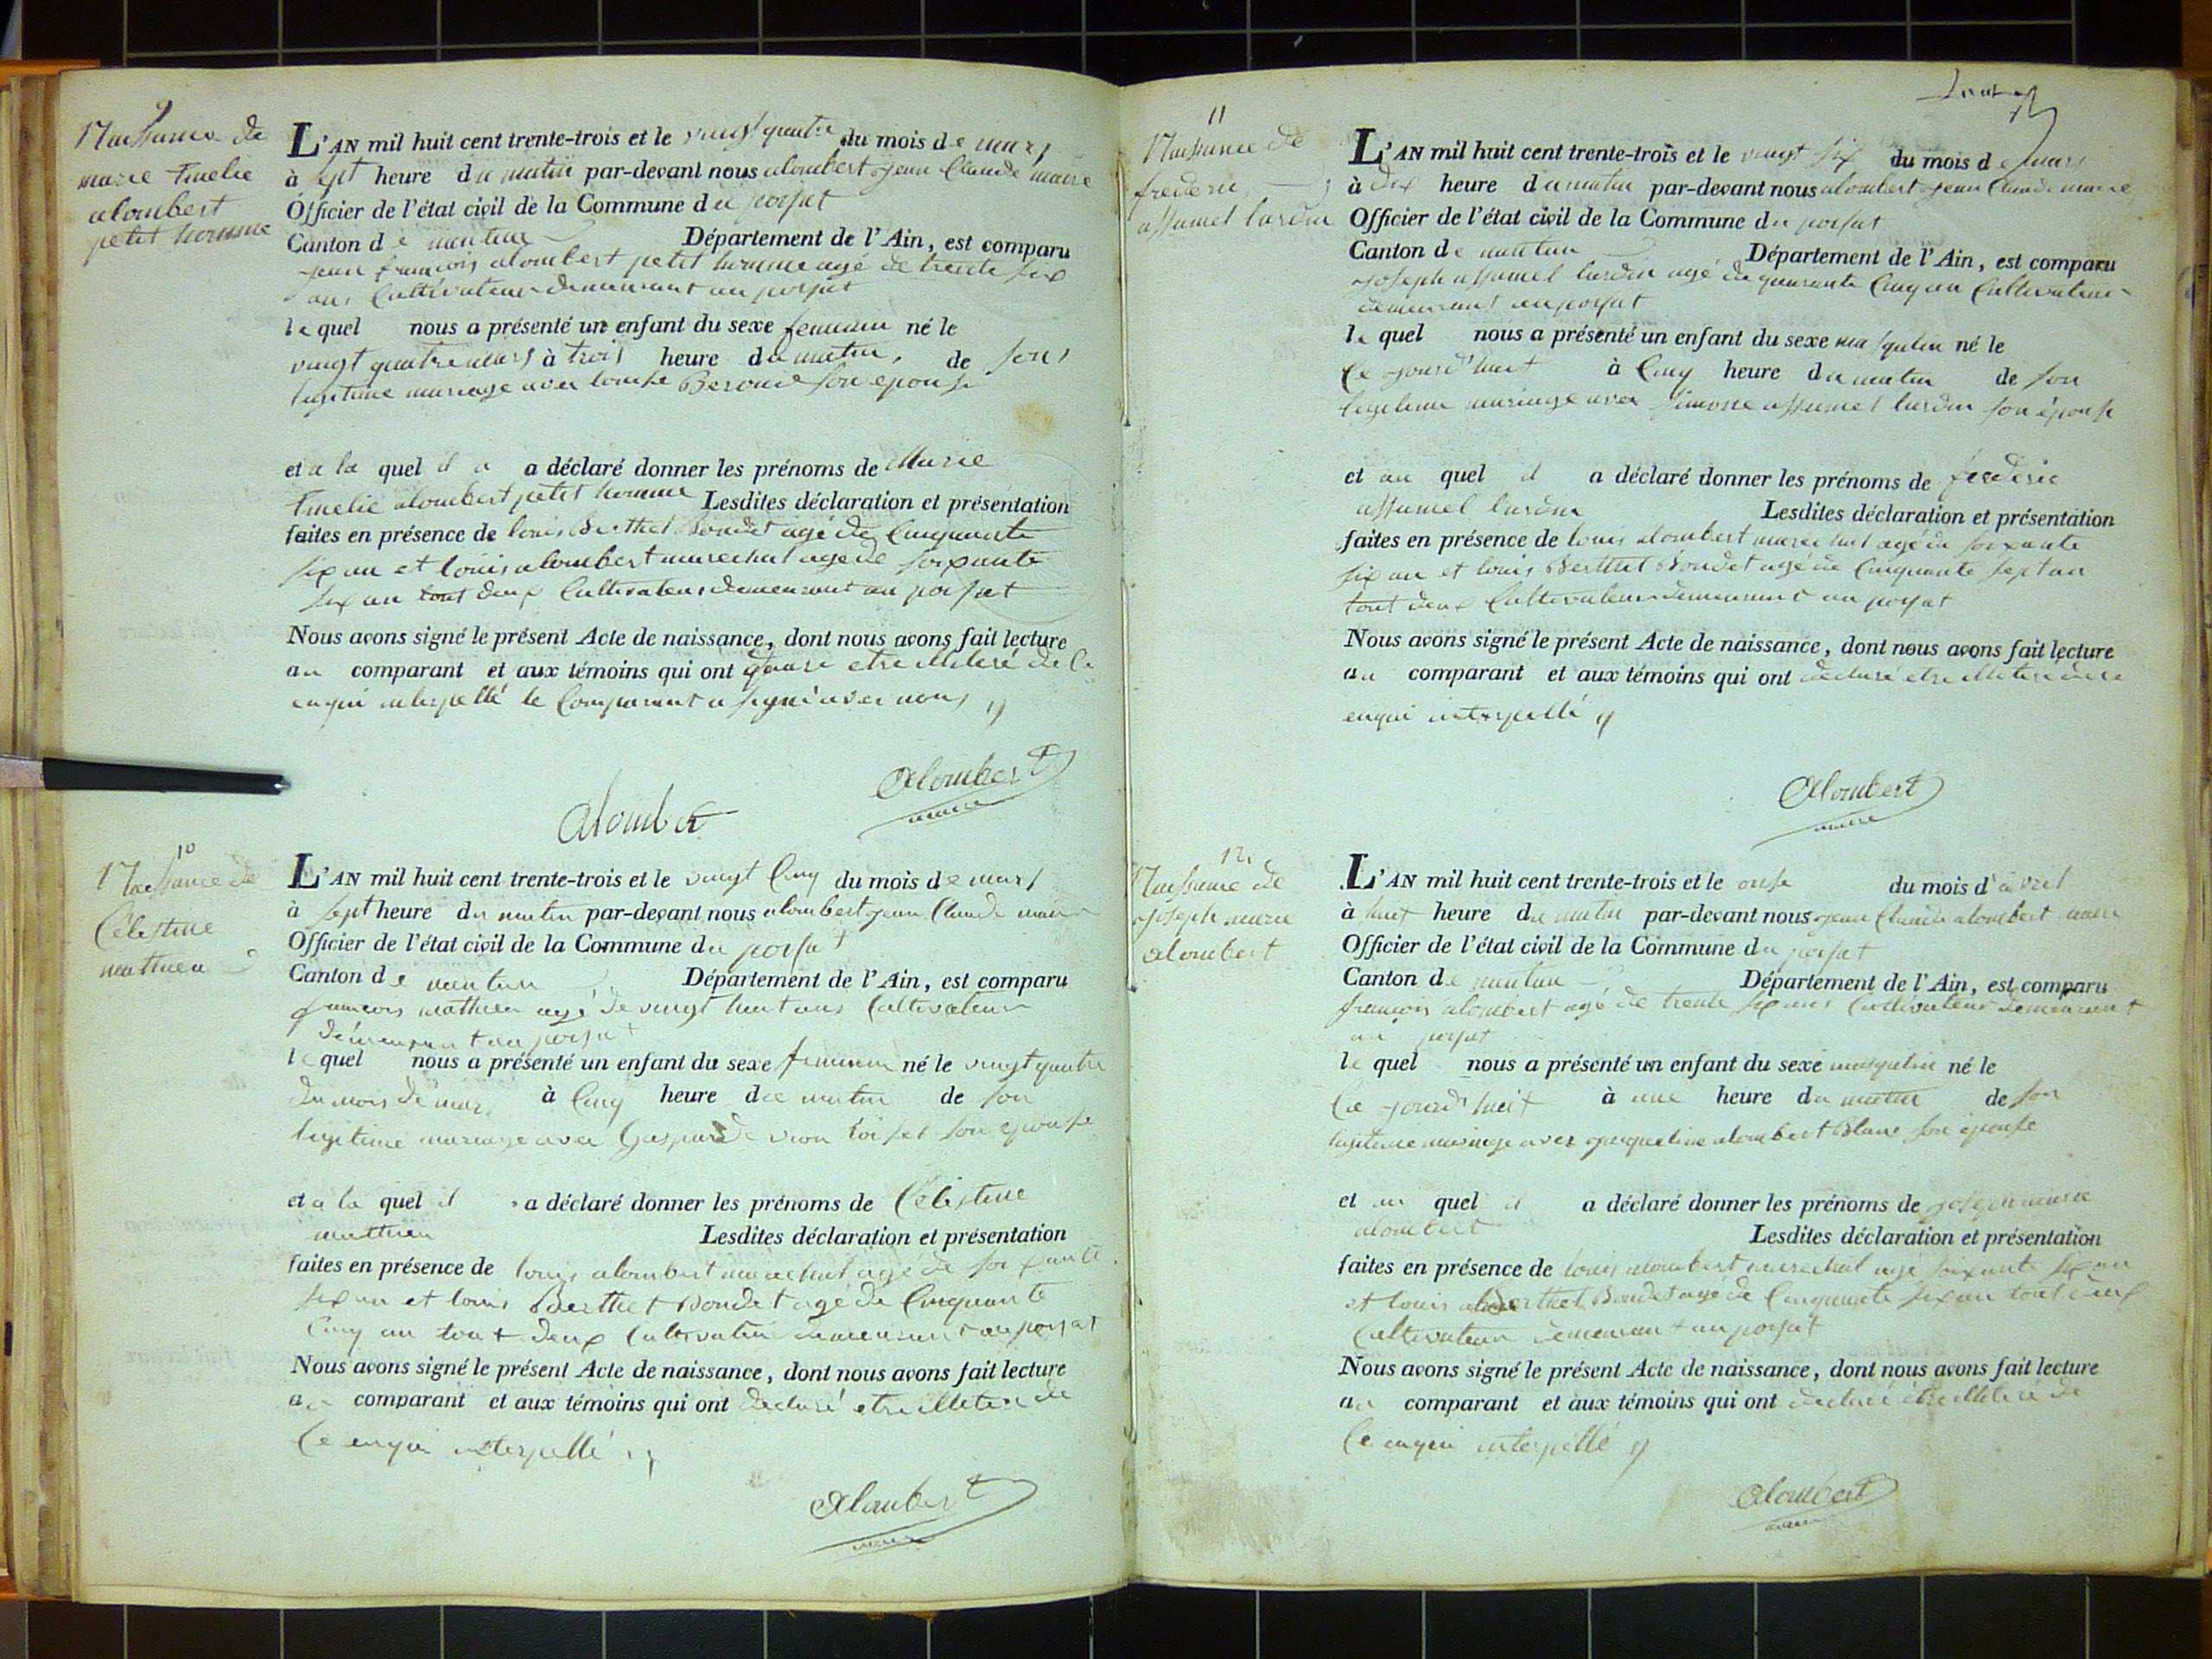 9
Naissance de
marie Emelie
alombert
petit homme
L'AN mil huit cent trente-trois et le vingt quatre du mois de mars
à sept heure du matin par-devant nous alombert jean Claude maire
Officier de l'état civil de la Commune du poisat
Canton de nantua Département de l'Ain, est comparu
jean francois alombert petit homme agé de trente six
ans Cultivateur demeurant au poisat
le quel nous a présenté un enfant du sexe feminin né le
vingt quatre mars à trois heure du matin, de son
legitime mariage avec louise son epouse
et a la quel il a a déclaré donner les prénoms de Marie
Emelie alombert petit homme Lesdites déclaration et présentation
faites en présence de louis Berthet Bondet agé de Cinquante
six an et louis alombert marechal age de soixante
six an tout deux Cultivateur demeurant au poisat
Nous avons signé le présent Acte de naissance, dont nous avons fait lecture
au comparant et aux témoins qui ont etre illiteré de Ce
enqui interpellé le Comparant a signé avec nous
alombert
Alombert
maire
10
Naissance de
Célestine
mathieu
L'AN mil huit cent trente-trois et le vingt Cinq du mois de mars
à sept heure du matin par-devant nous alombert jean Claude maire
Officier de l'état civil de la Commune du poisat
Canton de nantua Département de l'Ain, est comparu
francois mathieu agé de vingt huit ans Cultivateur
demeurant au poisat
le quel nous a présenté un enfant du sexe feminin né le vingt quatre
du mois de mars à Cinq heure du matin de son
legitime mariage avec Gasparde son epouse
et a la quel il a déclaré donner les prénoms de Célestine
mathieu Lesdites déclaration et présentation
faites en présence de louis alombert marechal agé de soixante
six an et louis Berthet Bondet agé de Cinquante
Cinq an tout deux Cultivateur demeurant au poisat
Nous avons signé le présent Acte de naissance, dont nous avons fait lecture
au comparant et aux témoins qui ont declaré etre illiteré de
Ce enqui interpellé
Alombert
maire
11
Naissance de
frederic
assumel lurdin
L'AN mil huit cent trente-trois et le vingt six du mois de mars
à dix heure du matin par-devant nous alombert jean Claude maire
Officier de l'état civil de la Commune du poisat
Canton de nantua Département de l'Ain, est comparu
joseph assumel lurdin agé de quarante Cinq an Cultivateur
demeurant au poisat
le quel nous a présenté un enfant du sexe masqulin né le
Ce jourd'huit à Cinq heure du matin de son
legitime mariage avec simonne assumel lurdin son épouse
et au quel il a déclaré donner les prénoms de frederic
assumel lurdin Lesdites déclaration et présentation
faites en présence de louis alombert marechal agé de soixante
six an et louis Berthet Bondet agé de Cinquante sept an
tout deux Cultivateur demeurant au poisat
Nous avons signé le présent Acte de naissance, dont nous avons fait lecture
au comparant et aux témoins qui ont declaré etre illiteré de ce
enqui interpellé
Alombert
maire
12
Naissance de
joseph marie
alombert
L'AN mil huit cent trente-trois et le onse du mois d'avril
à huit heure du matin par-devant nous jean Claude alombert maire
Officier de l'état civil de la Commune du poisat
Canton de nantua Département de l'Ain, est comparu
francois alombert agé de trente six ans Cultivateur demeurant
au poisat
le quel nous a présenté un enfant du sexe masqulin né le
Ce jourd'huit à une heure du matin de son
legitime mariage avec alombert Blanc son épouse
et au quel il a déclaré donner les prénoms de joseph marie
alombert Lesdites déclaration et présentation
faites en présence de louis alombert marechal agé soixante six an
et louis Berthet Bondet agé de Cinquante six an tout deux
Cultivateur demeurant au poisat
Nous avons signé le présent Acte de naissance, dont nous avons fait lecture
au comparant et aux témoins qui ont declaré etre illiteré de
Ce enqui interpellé
Alombert
maire